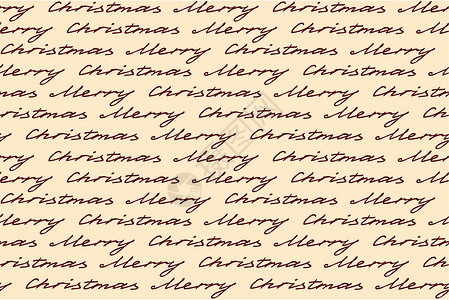 rry Christmas Merry Christmas Merry
erry Christmas Merry Christmas Merr
Christmas Merry Christmas Merry
Merry Christmas Merry Christmas M
mas Merry Christmas Merry Christmas
Merry Christmas Merry Christmas
y Christmas Merry Christmas Merry
rry Christmas Merry Christmas Merry
erry Christmas Merry Christmas Merr
Christmas Merry Christmas Merry
Merry Christmas Merry Christmas M
mas Merry Christmas Merry Christmas
Merry Christmas Merry Christmas
y Christmas Merry Christmas Merry